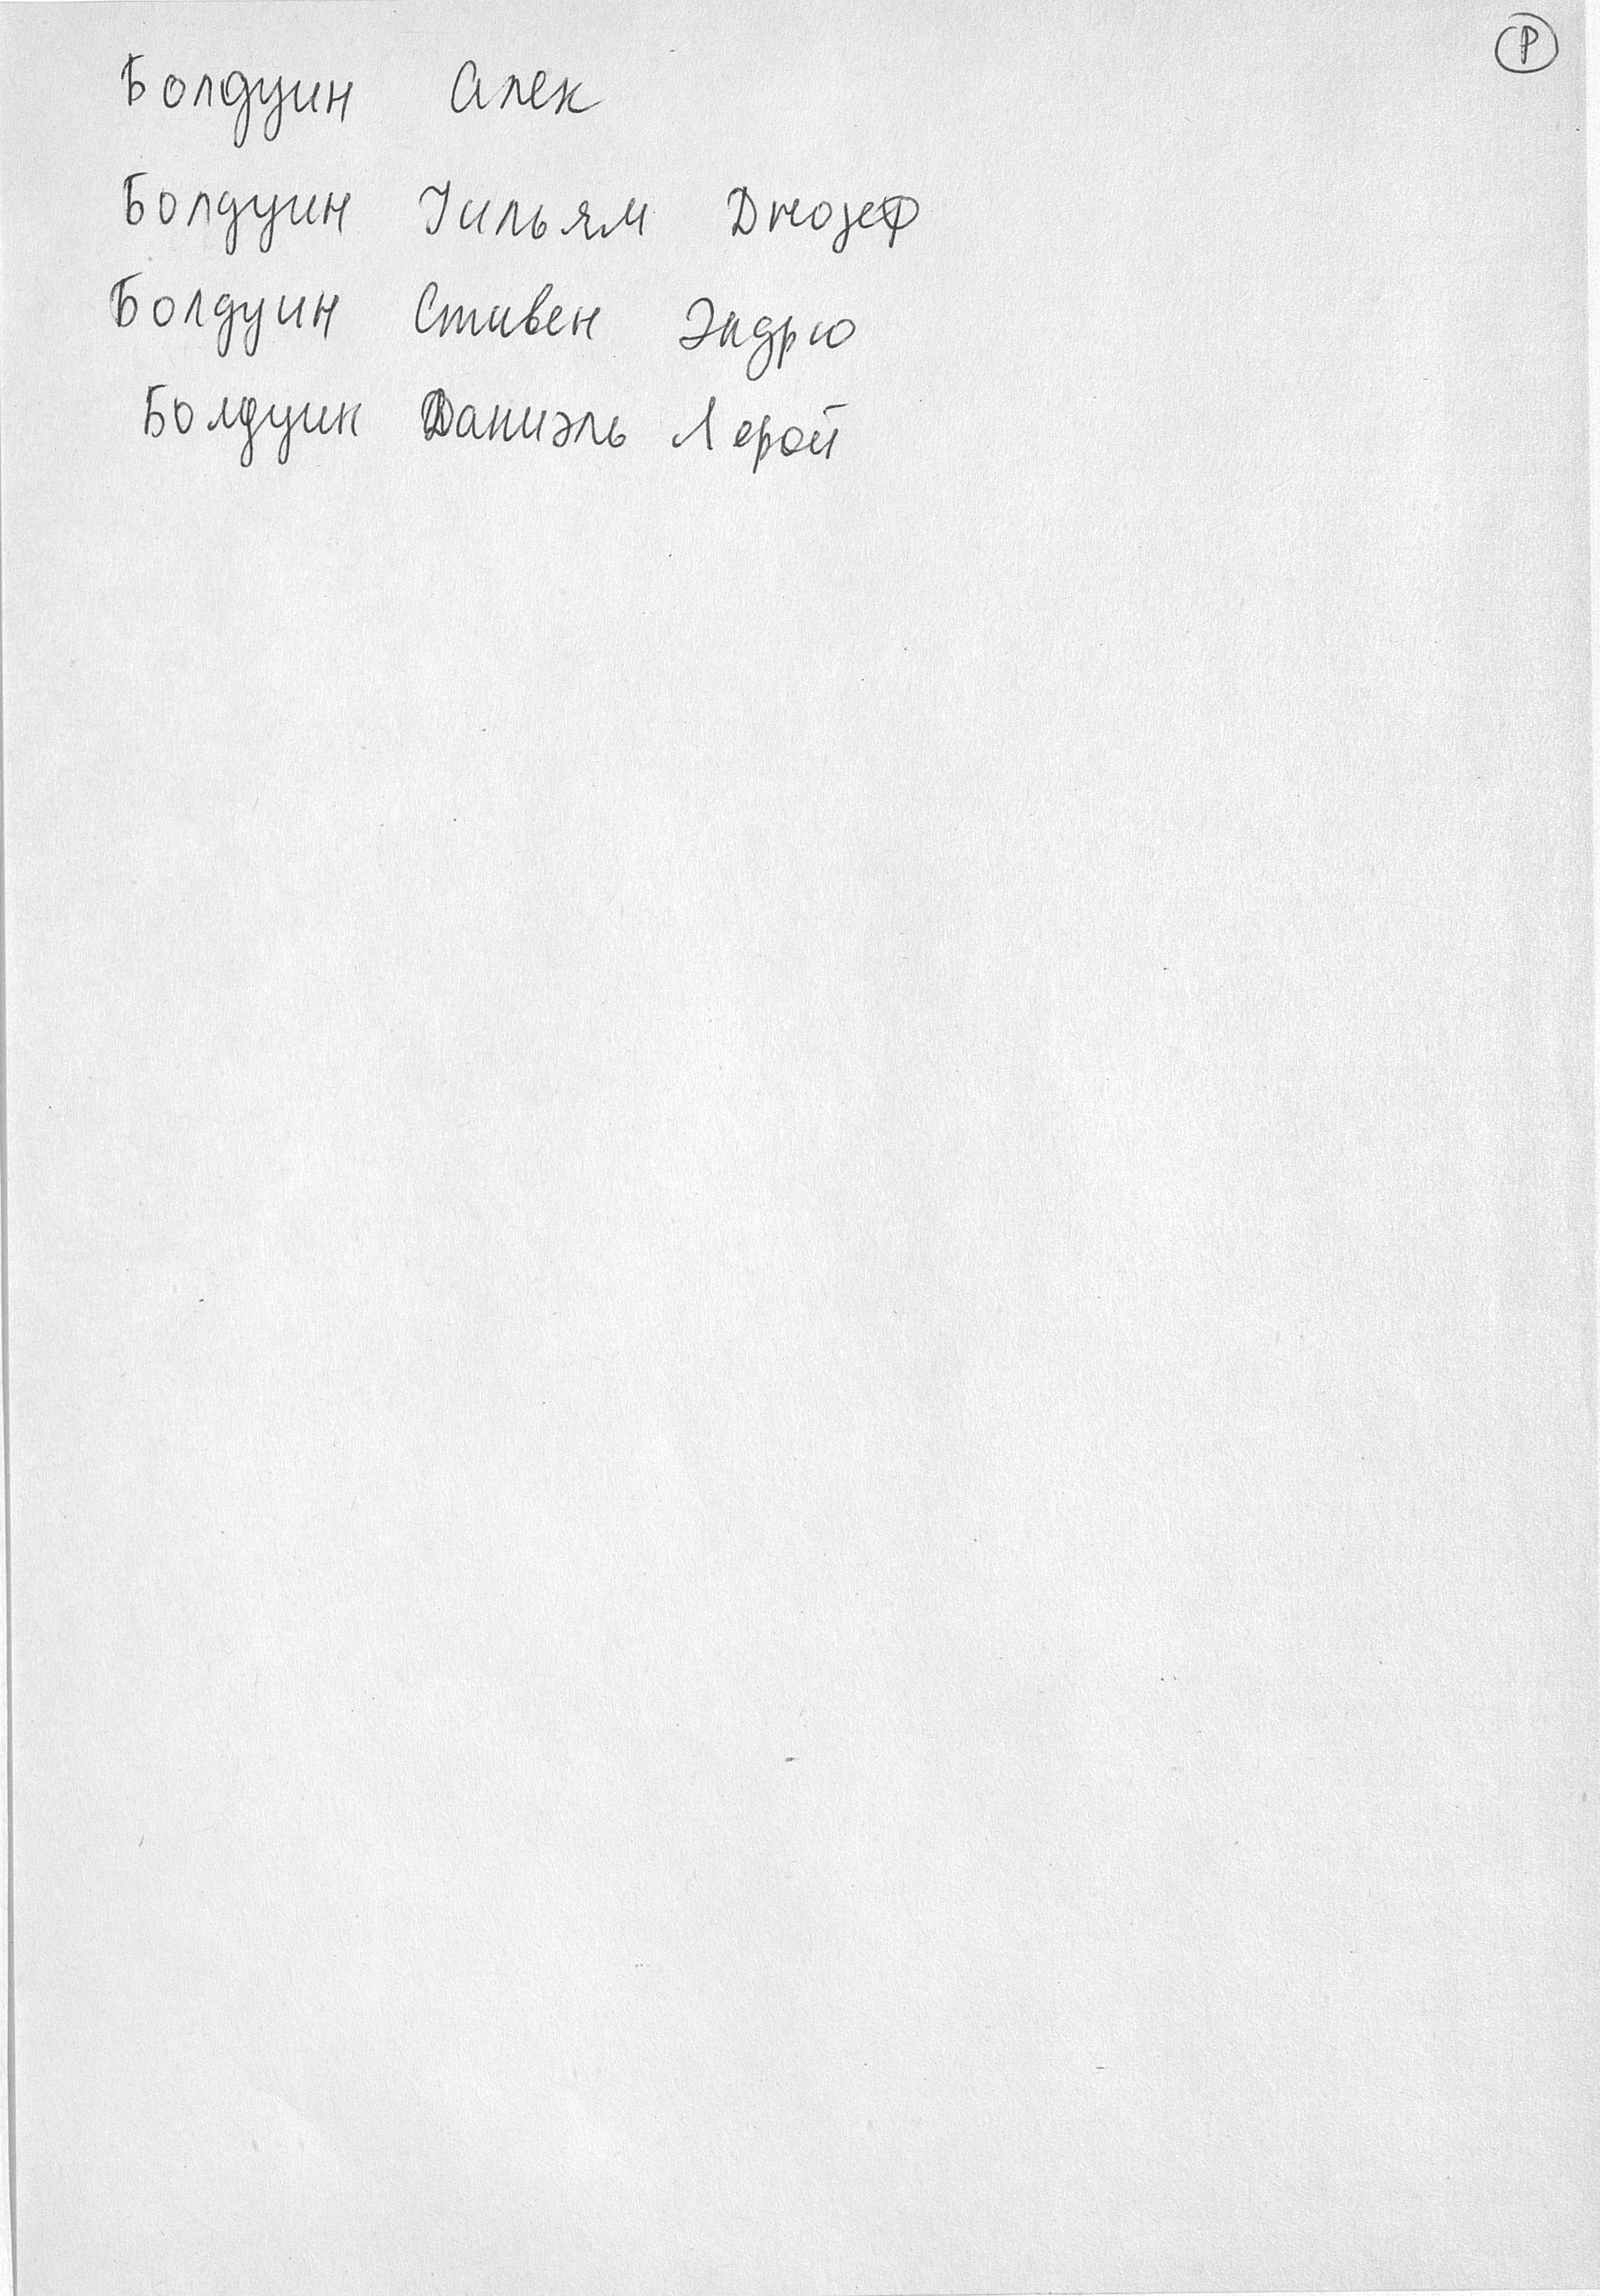 Р
Болдуин Алек
Болдуин Уильям Джозеф
Болдуин Стивен Эндрю
Болдуин Даниэль Лерой